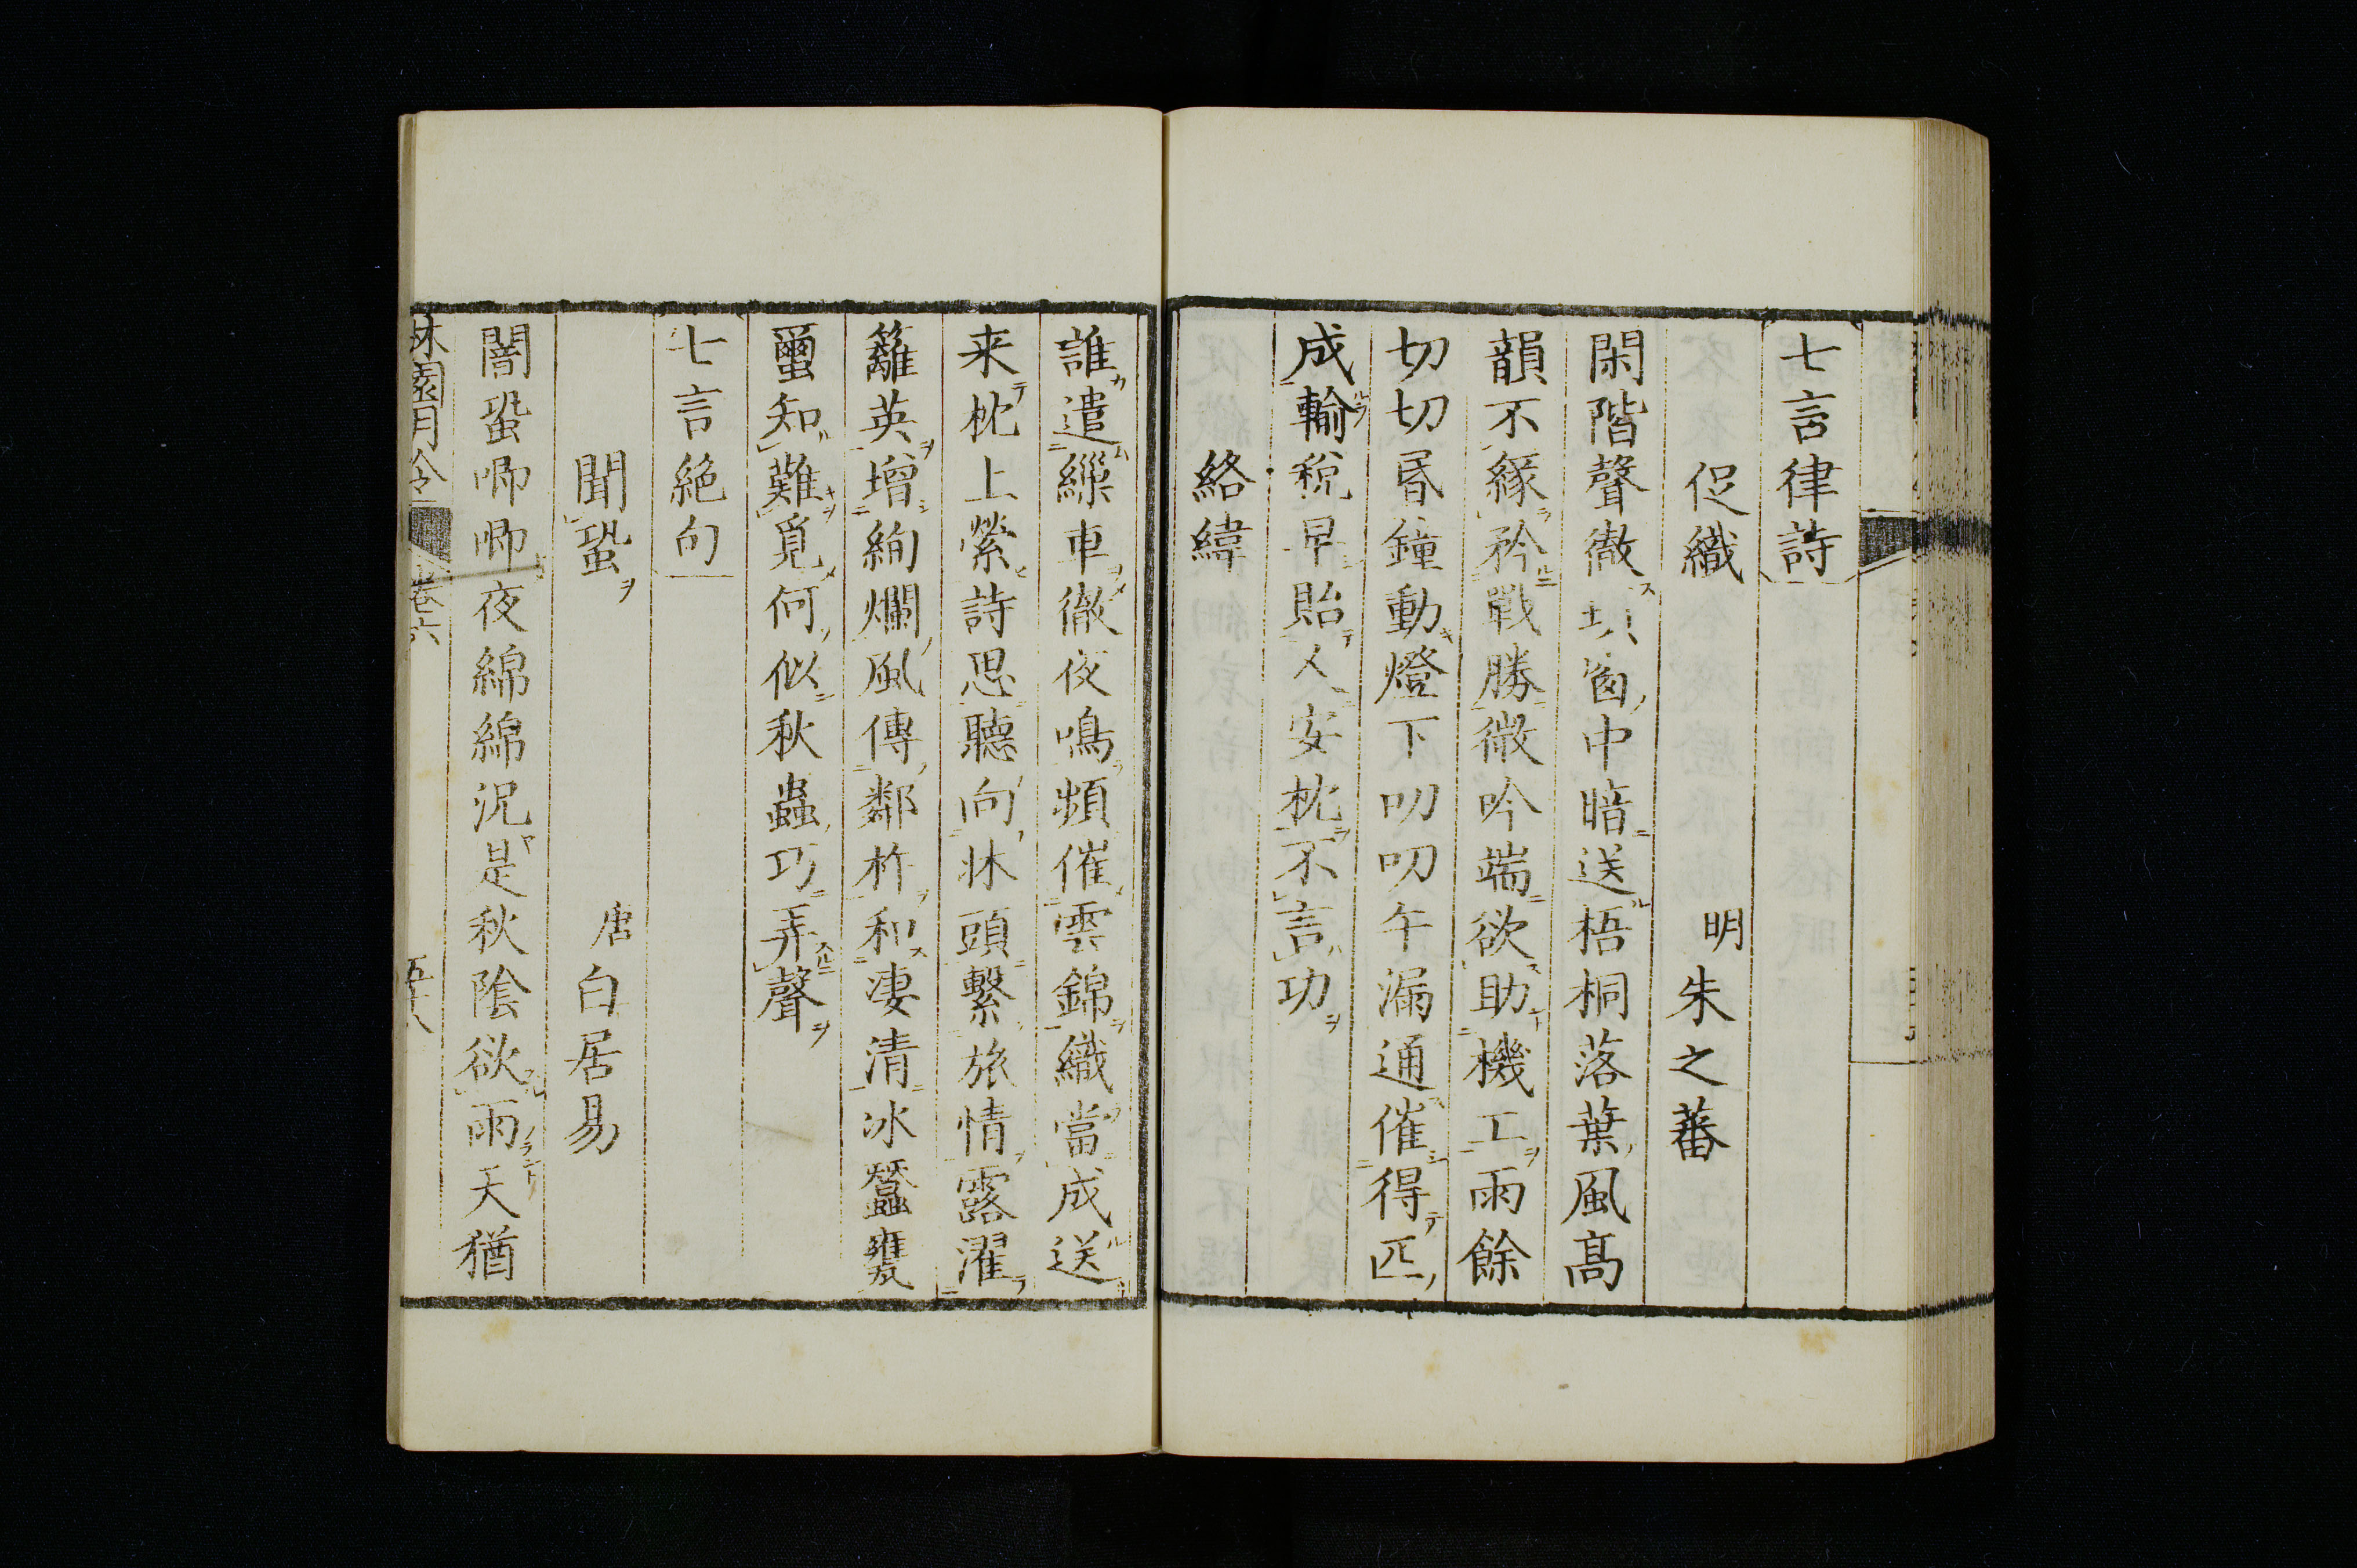 七言律詩
促織
明朱之蕃
閑階聲徹 窗中暗送梧桐落葉風高
韻不緣矜戰勝微吟端欲助機工雨餘
切切昏鐘動燈下叨叨午漏通催得匹
成輸税早貽人安枕不言功
絡緯
誰遣繅車徹夜鳴頻催雲錦織當成送
来枕上縈詩思聽向牀頭繫旅情露濯
籬英增絢爛風傳鄰杵和凄清冰蠶甕
璽知難覓何似秋蟲巧弄聲
七言絶句
聞蛩
唐白居易
闇蛩唧唧夜綿綿況是秋陰欲雨天猶
園月令
卷六